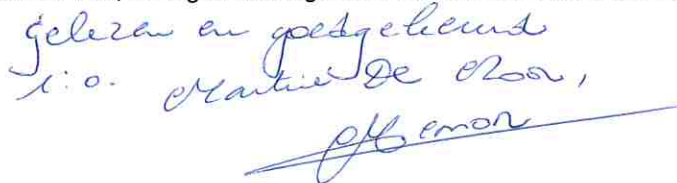 gelezen en goedgekeurd
i.o. Martine De Moor,